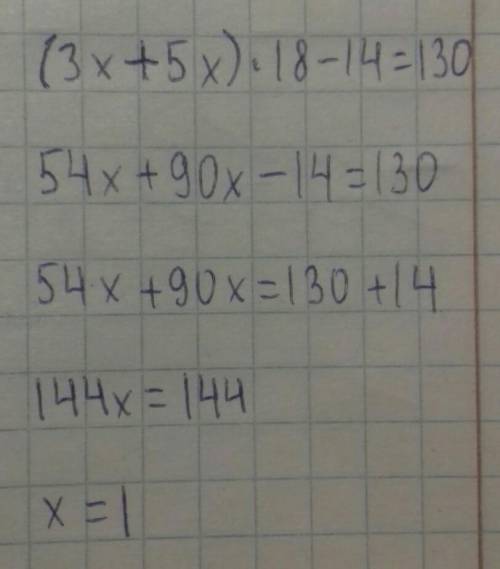 (3x+5x)·18-14=130
54x+90x-14=130
54x+90x=130+14
144x=144
x=1